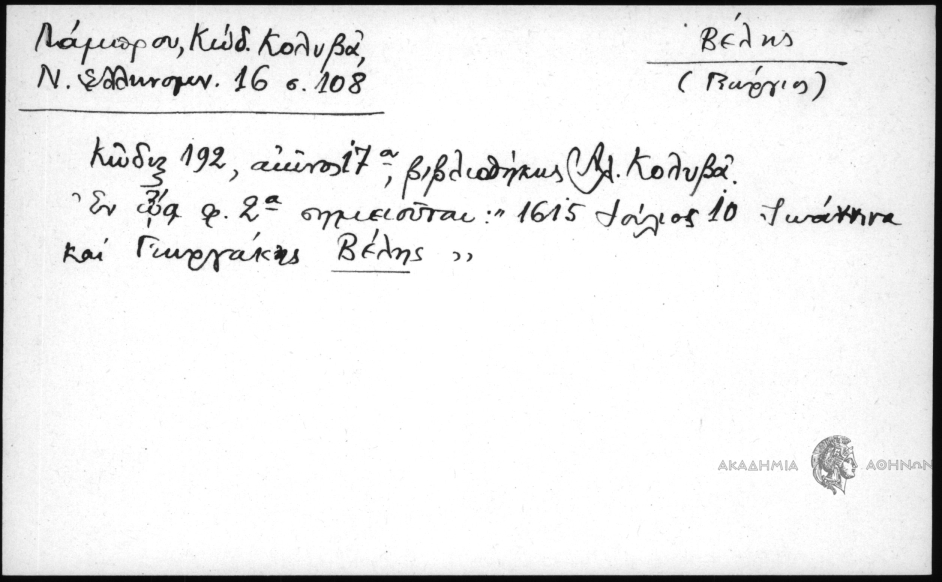 Λάμπρου, Κώδ. Κολυβᾶ,
Ν. Ἑλληνομν. 16 σ. 108
Βέλης
(Γεώργιος)
Κῶδιξ 192, αἰῶνος 17ᵒᵘ, βιβλιοθήκης Ἀλ. Κολυβᾶ.
Ἐν φ. 2ᵃ σημειοῦται: " 1615 Ἰούλιος 10 Ἰωάννινα
καί Γεωργάκης Βέλης "
ΑΚΑΔΗΜΙΑ ΑΘΗΝΩΝ